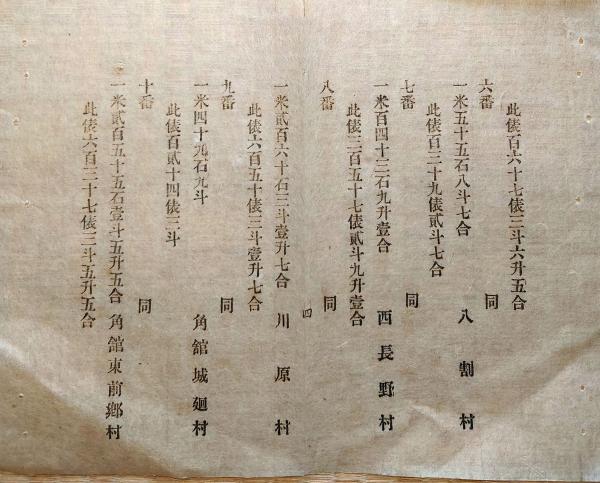 此俵百六十七俵三斗六升五合
六番 同
一米五十五石八斗七合 八割村
此俵百三十九俵貳斗七合
七番 同
一米百四十三石九升壹合 西長野村
此俵三百五十七俵貳斗九升壹合
八番 同
四
一米貳百六十石三斗壹升七合 川原村
此俵六百五十俵三斗壹升七合
九番 同
一米四十九石九斗 角館城廻村
此俵百貳十四俵三斗
十番 同
一米貳百五十五石壹斗五升五合 角館東前鄕村
此俵六百三十七俵三斗五升五合